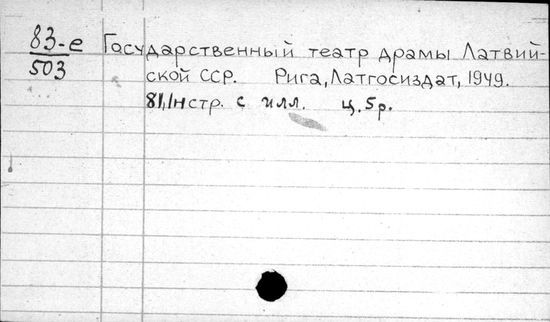 83-е Государственный театр драмы Латвий-
503 ской ССР. Рига, Латгосиздат, 1949.
81,1нстр. с илл. ц. 5р.